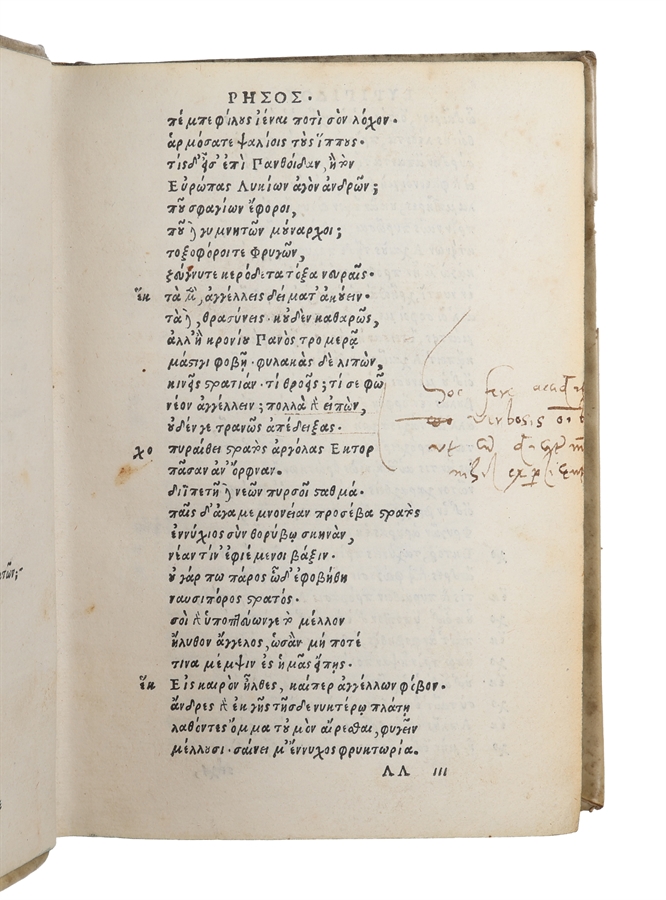 ΡΗΣΟΣ.
πέμπε φίλους ἰέναι ποτὶ σὸν λόχον.
ἁρμόσατε ψαλίοις τοὺς ἵππους.
τίς δ' εἶσ' ἐπὶ Πανθοίδαν, ἢ τὸν
Εὐρώπας Λυκίων ἀγὸν ἀνδρῶν;
ποῦ σφαγίων ἔφοροι,
ποῦ δὲ γυμνητῶν μούναρχοι;
τοξοφόροι τε Φρυγῶν,
ζεύγνυτε κερόδετα τόξα νευραῖς.
ἕκ τὰ μὲν, ἀγγέλλεις δείματ' ἀκούειν.
τὰ δὲ, θρατύνεις. κοὐδὲν καθαρῶς,
ἀλλ' ἢ κρονίου Πανὸς τρομερᾷ
μάστιγι φοβῇ. φυλακὰς δὲ λιπὼν,
κινεῖς στρατιάν. τί θροεῖς; τί σε φῶ
νέον ἀγγέλλειν; πολλὰ γὰρ εἰπὼν,
οὐδὲν γε τρανῶς ἀπέδειξας.
χο πυραίθει στρατὸς ἀργόλας Εκτορ
πᾶσαν ἀν' ὄρφναν.
διϊπετῆ δὲ νεῶν πυρσοῖς σταθμά.
παῖς δ' ἀγαμεμνονείαν προσέβα στρατὸς
ἐννύχιος σὺν θορύβῳ σκηνὰν,
νέαν τίν' ἐφιέμενοι βάξιν.
οὐ γάρ πω πάρος ὧδ' ἐφοβήθη
ναυσιπόρος στρατός.
σοὶ δ' ὑποπτεύων γε τὸ μέλλον
ἤλυθον ἄγγελος, ὡς ἂν μή ποτέ
τινα μέμψιν ἐς ἡμᾶς εἴπης.
ἕκ Εἰς καιρὸν ἦλθες, καίπερ ἀγγέλλων φόβον.
ἄνδρες γὰρ ἐκ γῆς τῆσδε νυκτέρῳ πλάτῃ
λαθόντες ὄμμα τοὐμὸν αἴρεσθαι, φυγεῖν
μέλλουσι. σαίνει μ' ἔννυχος φρυκτωρία.
ΛΛ iii
verbosis